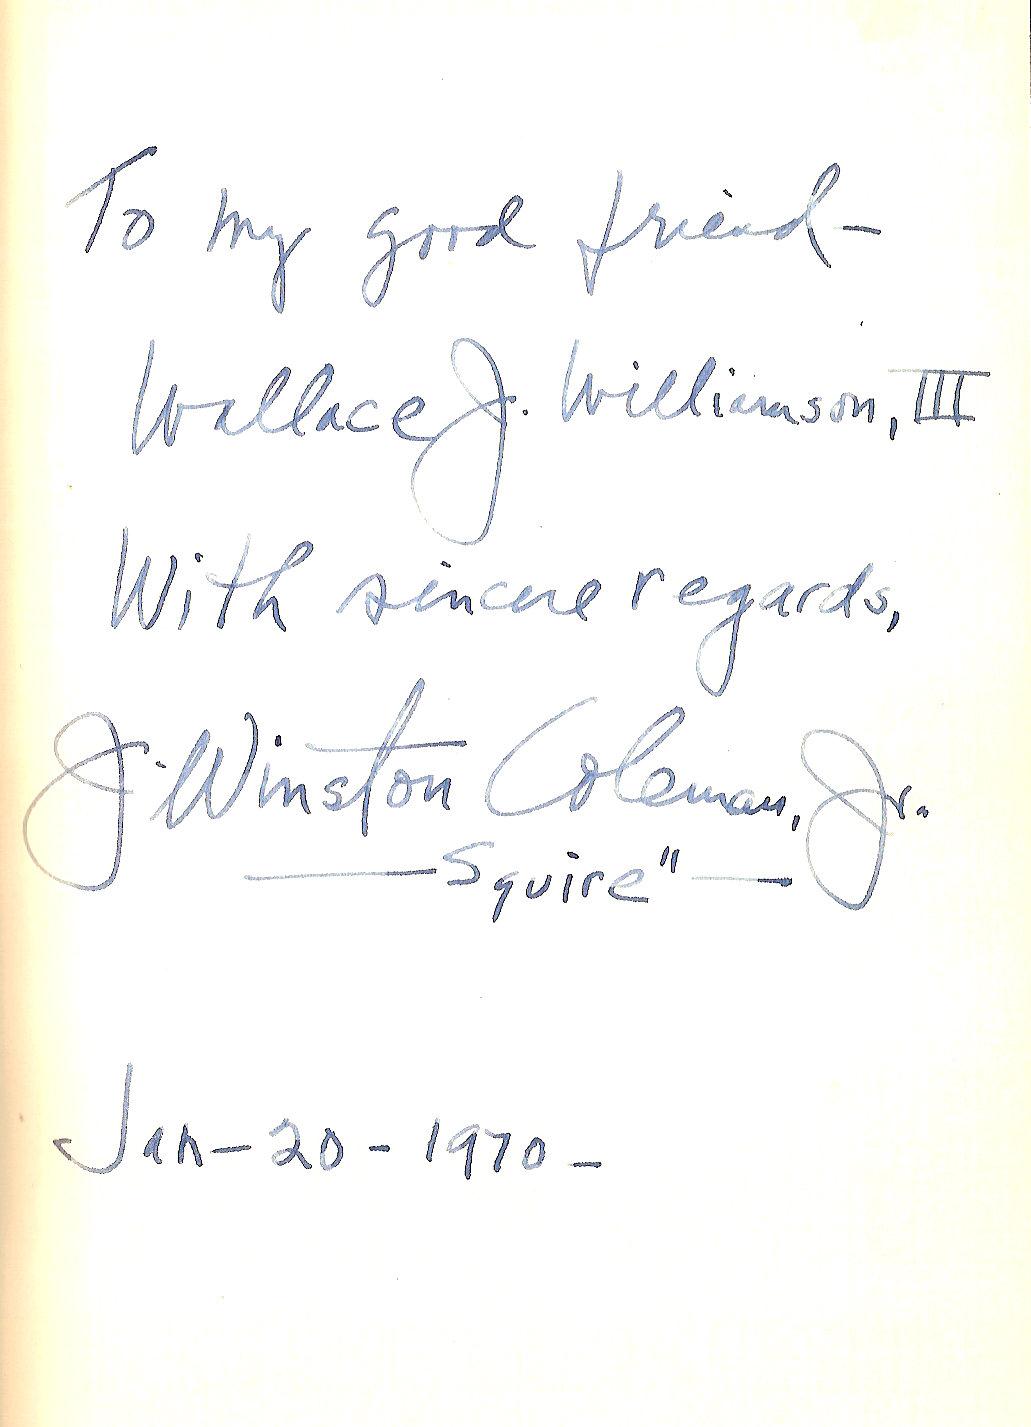 To my good friend-
Wallace J. Williamson, III
With sincere regards,
J. Winston Coleman, Jr.
— Squire" —
Jan-20-1970-